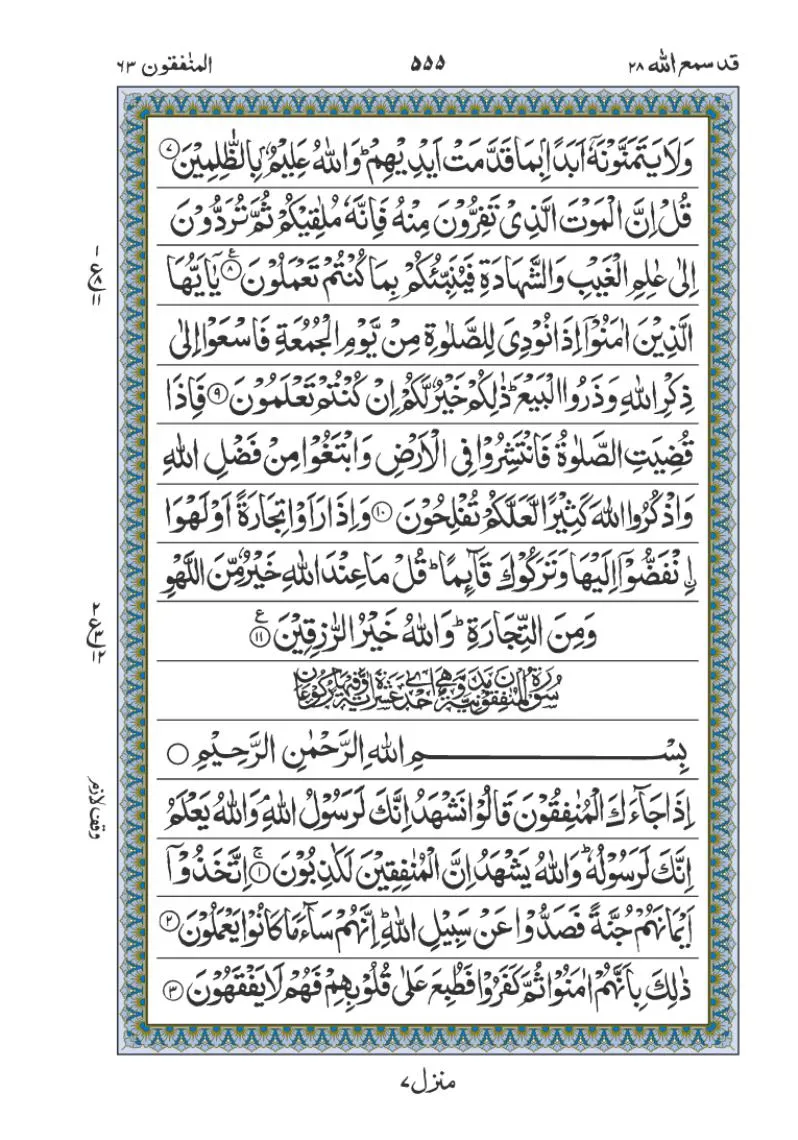 قد سمع الله ٢٨
٥٥٥
المنٰفقون ٦٣
وَلَا يَتَمَنَّوۡنَهٗۤ اَبَدًۢا بِمَا قَدَّمَتۡ اَيۡدِيۡهِمۡ‌ؕ وَاللّٰهُ عَلِيۡمٌۢ بِالظّٰلِمِيۡنَ ﴿٧﴾
قُلۡ اِنَّ الۡمَوۡتَ الَّذِىۡ تَفِرُّوۡنَ مِنۡهُ فَاِنَّهٗ مُلٰقِيۡكُمۡ‌ ثُمَّ تُرَدُّوۡنَ
اِلٰى عٰلِمِ الۡغَيۡبِ وَالشَّهَادَةِ فَيُنَبِّئُكُمۡ بِمَا كُنۡتُمۡ تَعۡمَلُوۡنَ ﴿٨﴾ ع يٰۤاَيُّهَا
الَّذِيۡنَ اٰمَنُوۡۤا اِذَا نُوۡدِىَ لِلصَّلٰوةِ مِنۡ يَّوۡمِ الۡجُمُعَةِ فَاسۡعَوۡا اِلٰى
ذِكۡرِ اللّٰهِ وَذَرُوا الۡبَيۡعَ‌ؕ ذٰ لِكُمۡ خَيۡرٌ لَّكُمۡ اِنۡ كُنۡتُمۡ تَعۡلَمُوۡنَ ﴿٩﴾ فَاِذَا
قُضِيَتِ الصَّلٰوةُ فَانۡتَشِرُوۡا فِى الۡاَرۡضِ وَابۡتَغُوۡا مِنۡ فَضۡلِ اللّٰهِ
وَاذۡكُرُوا اللّٰهَ كَثِيۡرًا لَّعَلَّكُمۡ تُفۡلِحُوۡنَ ﴿١٠﴾ وَاِذَا رَاَوۡا تِجَارَةً اَوۡ لَهۡوَا
۟اۨنْفَضُّوۡۤا اِلَيۡهَا وَتَرَكُوۡكَ قَآٮِٕمًا‌ؕ قُلۡ مَا عِنۡدَ اللّٰهِ خَيۡرٌ مِّنَ اللَّهۡوِ
وَمِنَ التِّجَارَةِ‌ؕ وَاللّٰهُ خَيۡرُ الرّٰزِقِيۡنَ ﴿١١﴾ ع
سُوۡرَةُ الۡمُنٰفِقُوۡنَ مَدَنِيَّةٌ وَّهِىَ اِحۡدٰى عَشۡرَةَ اٰيَةً وَّفِيۡهَا رُكُوۡعَانِ
بِسۡمِ اللّٰهِ الرَّحۡمٰنِ الرَّحِيۡمِ
اِذَا جَآءَكَ الۡمُنٰفِقُوۡنَ قَالُوۡا نَشۡهَدُ اِنَّكَ لَرَسُوۡلُ اللّٰهِ‌ۘ وَاللّٰهُ يَعۡلَمُ
اِنَّكَ لَرَسُوۡلُهٗ‌ؕ وَاللّٰهُ يَشۡهَدُ اِنَّ الۡمُنٰفِقِيۡنَ لَـكٰذِبُوۡنَ‌ۚ ﴿١﴾ اِتَّخَذُوۡۤا
اَيۡمَانَهُمۡ جُنَّةً فَصَدُّوۡا عَنۡ سَبِيۡلِ اللّٰهِ‌ؕ اِنَّهُمۡ سَآءَ مَا كَانُوۡا يَعۡمَلُوۡنَ ﴿٢﴾
ذٰلِكَ بِاَنَّهُمۡ اٰمَنُوۡا ثُمَّ كَفَرُوۡا فَطُبِعَ عَلٰى قُلُوۡبِهِمۡ فَهُمۡ لَا يَفۡقَهُوۡنَ ﴿٣﴾
١ ع ٨ ١١
٢ ع ٣ ١٢
وقف لازم
منزل ٧